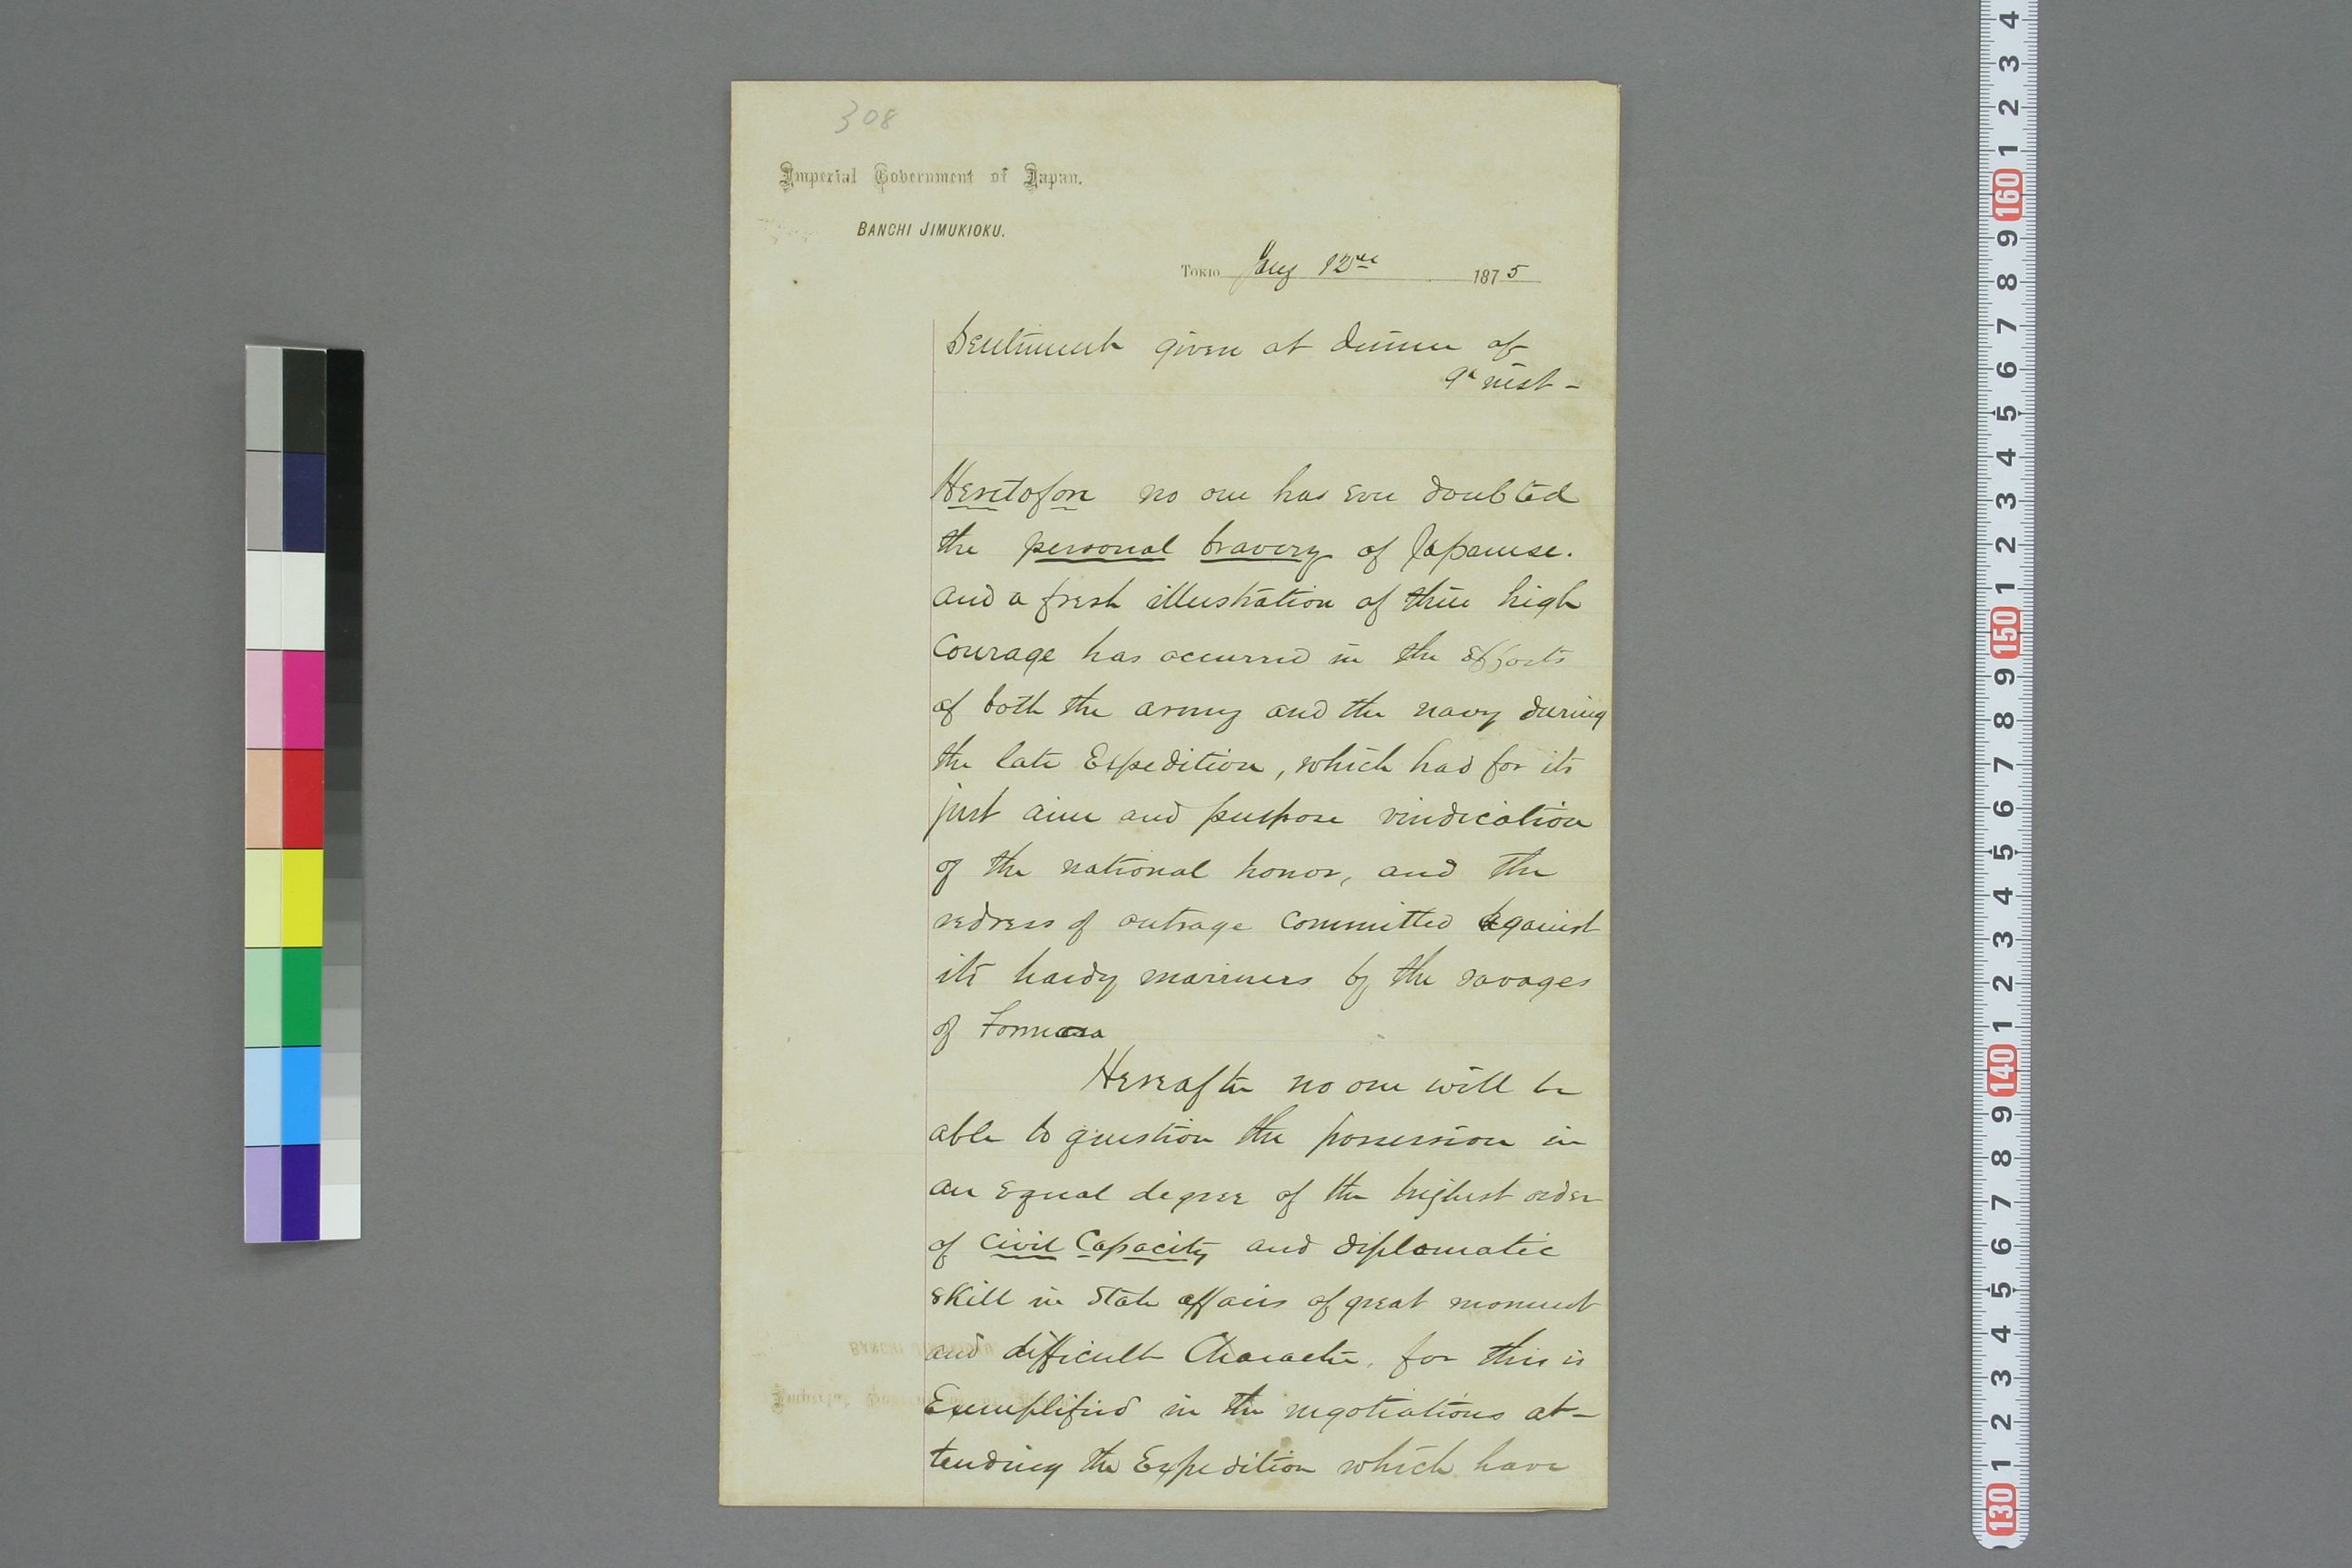 308
Imperial Government of Japan.
BANCHI JIMUKIOKU.
TOKIO Jany 12th 1875
Sentiment given at dinner of
9th inst -
Heretofore no one has ever doubted
the personal bravery of Japanese.
and a fresh illustration of their high
courage has occurred in the efforts
of both the army and the navy during
the late Expedition, which had for its
just aim and purpose vindication
of the national honor, and the
redress of outrage committed against
its hardy mariners by the savages
of Formosa
Hereafter no one will be
able to question the possession in
an equal degree of the highest order
of Civil Capacity and diplomatic
skill in State affairs of great moment
and difficult Character, for this is
Exemplified in the negotiations at-
tending the Expedition which have
4
3
2
1
160
9
8
7
6
5
4
3
2
1
150
9
8
7
6
5
4
3
2
1
140
9
8
7
6
5
4
3
2
1
130